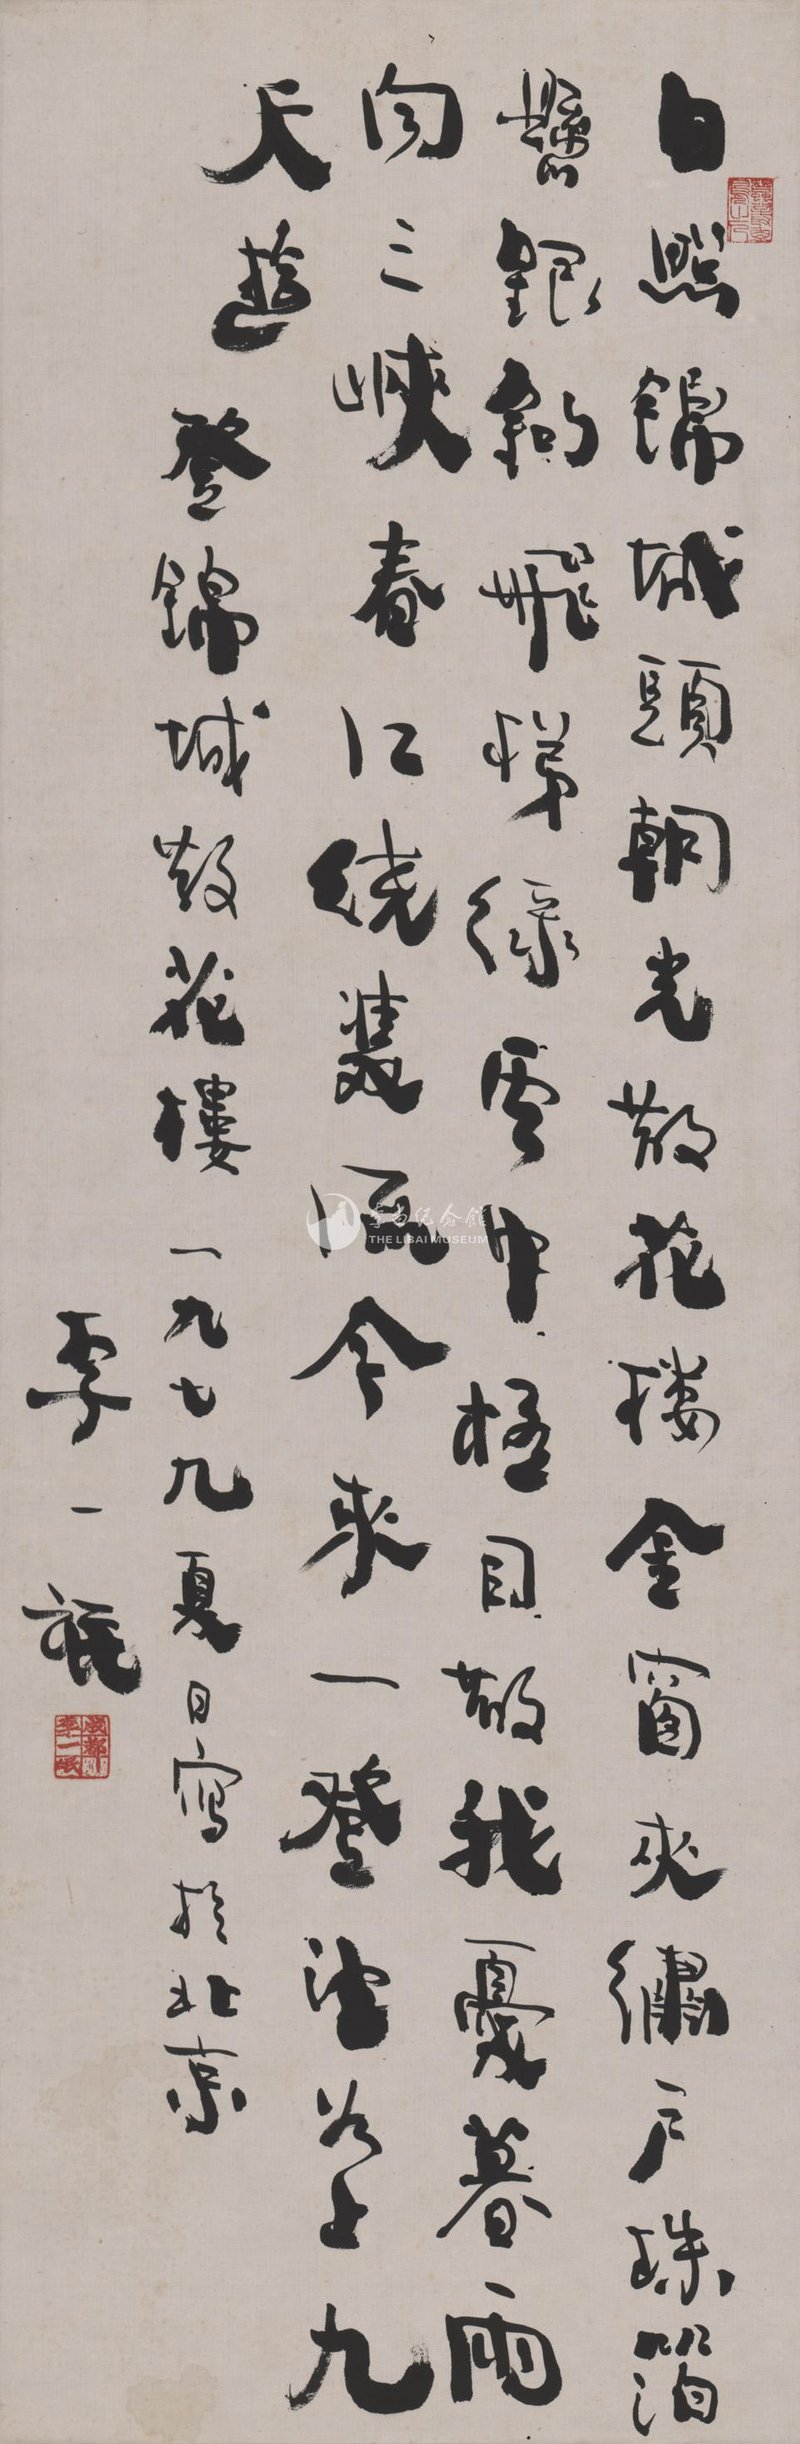 日照錦城頭朝光散花楼金窗夾繡户珠箔
懸銀鉤飛梯綠雲中極目散我憂暮雨
向三峽春江绕雙流今來一登望如上九
天遊 登錦城散花樓 一九七九夏日寫於北京
李一氓
成都李一氓
李白纪念館
THE LIBAI MUSEUM